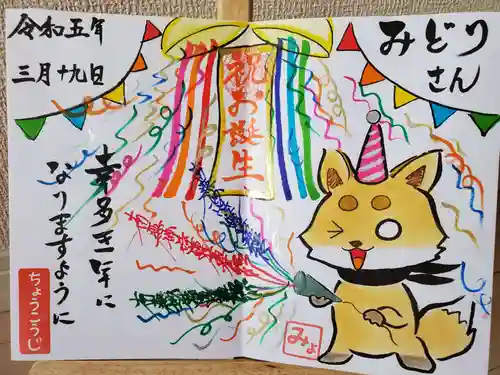 令和五年
三月十九日
みどり
さん
祝お誕生
幸多き一年に
なりますように
ちょうこうじ
みよ